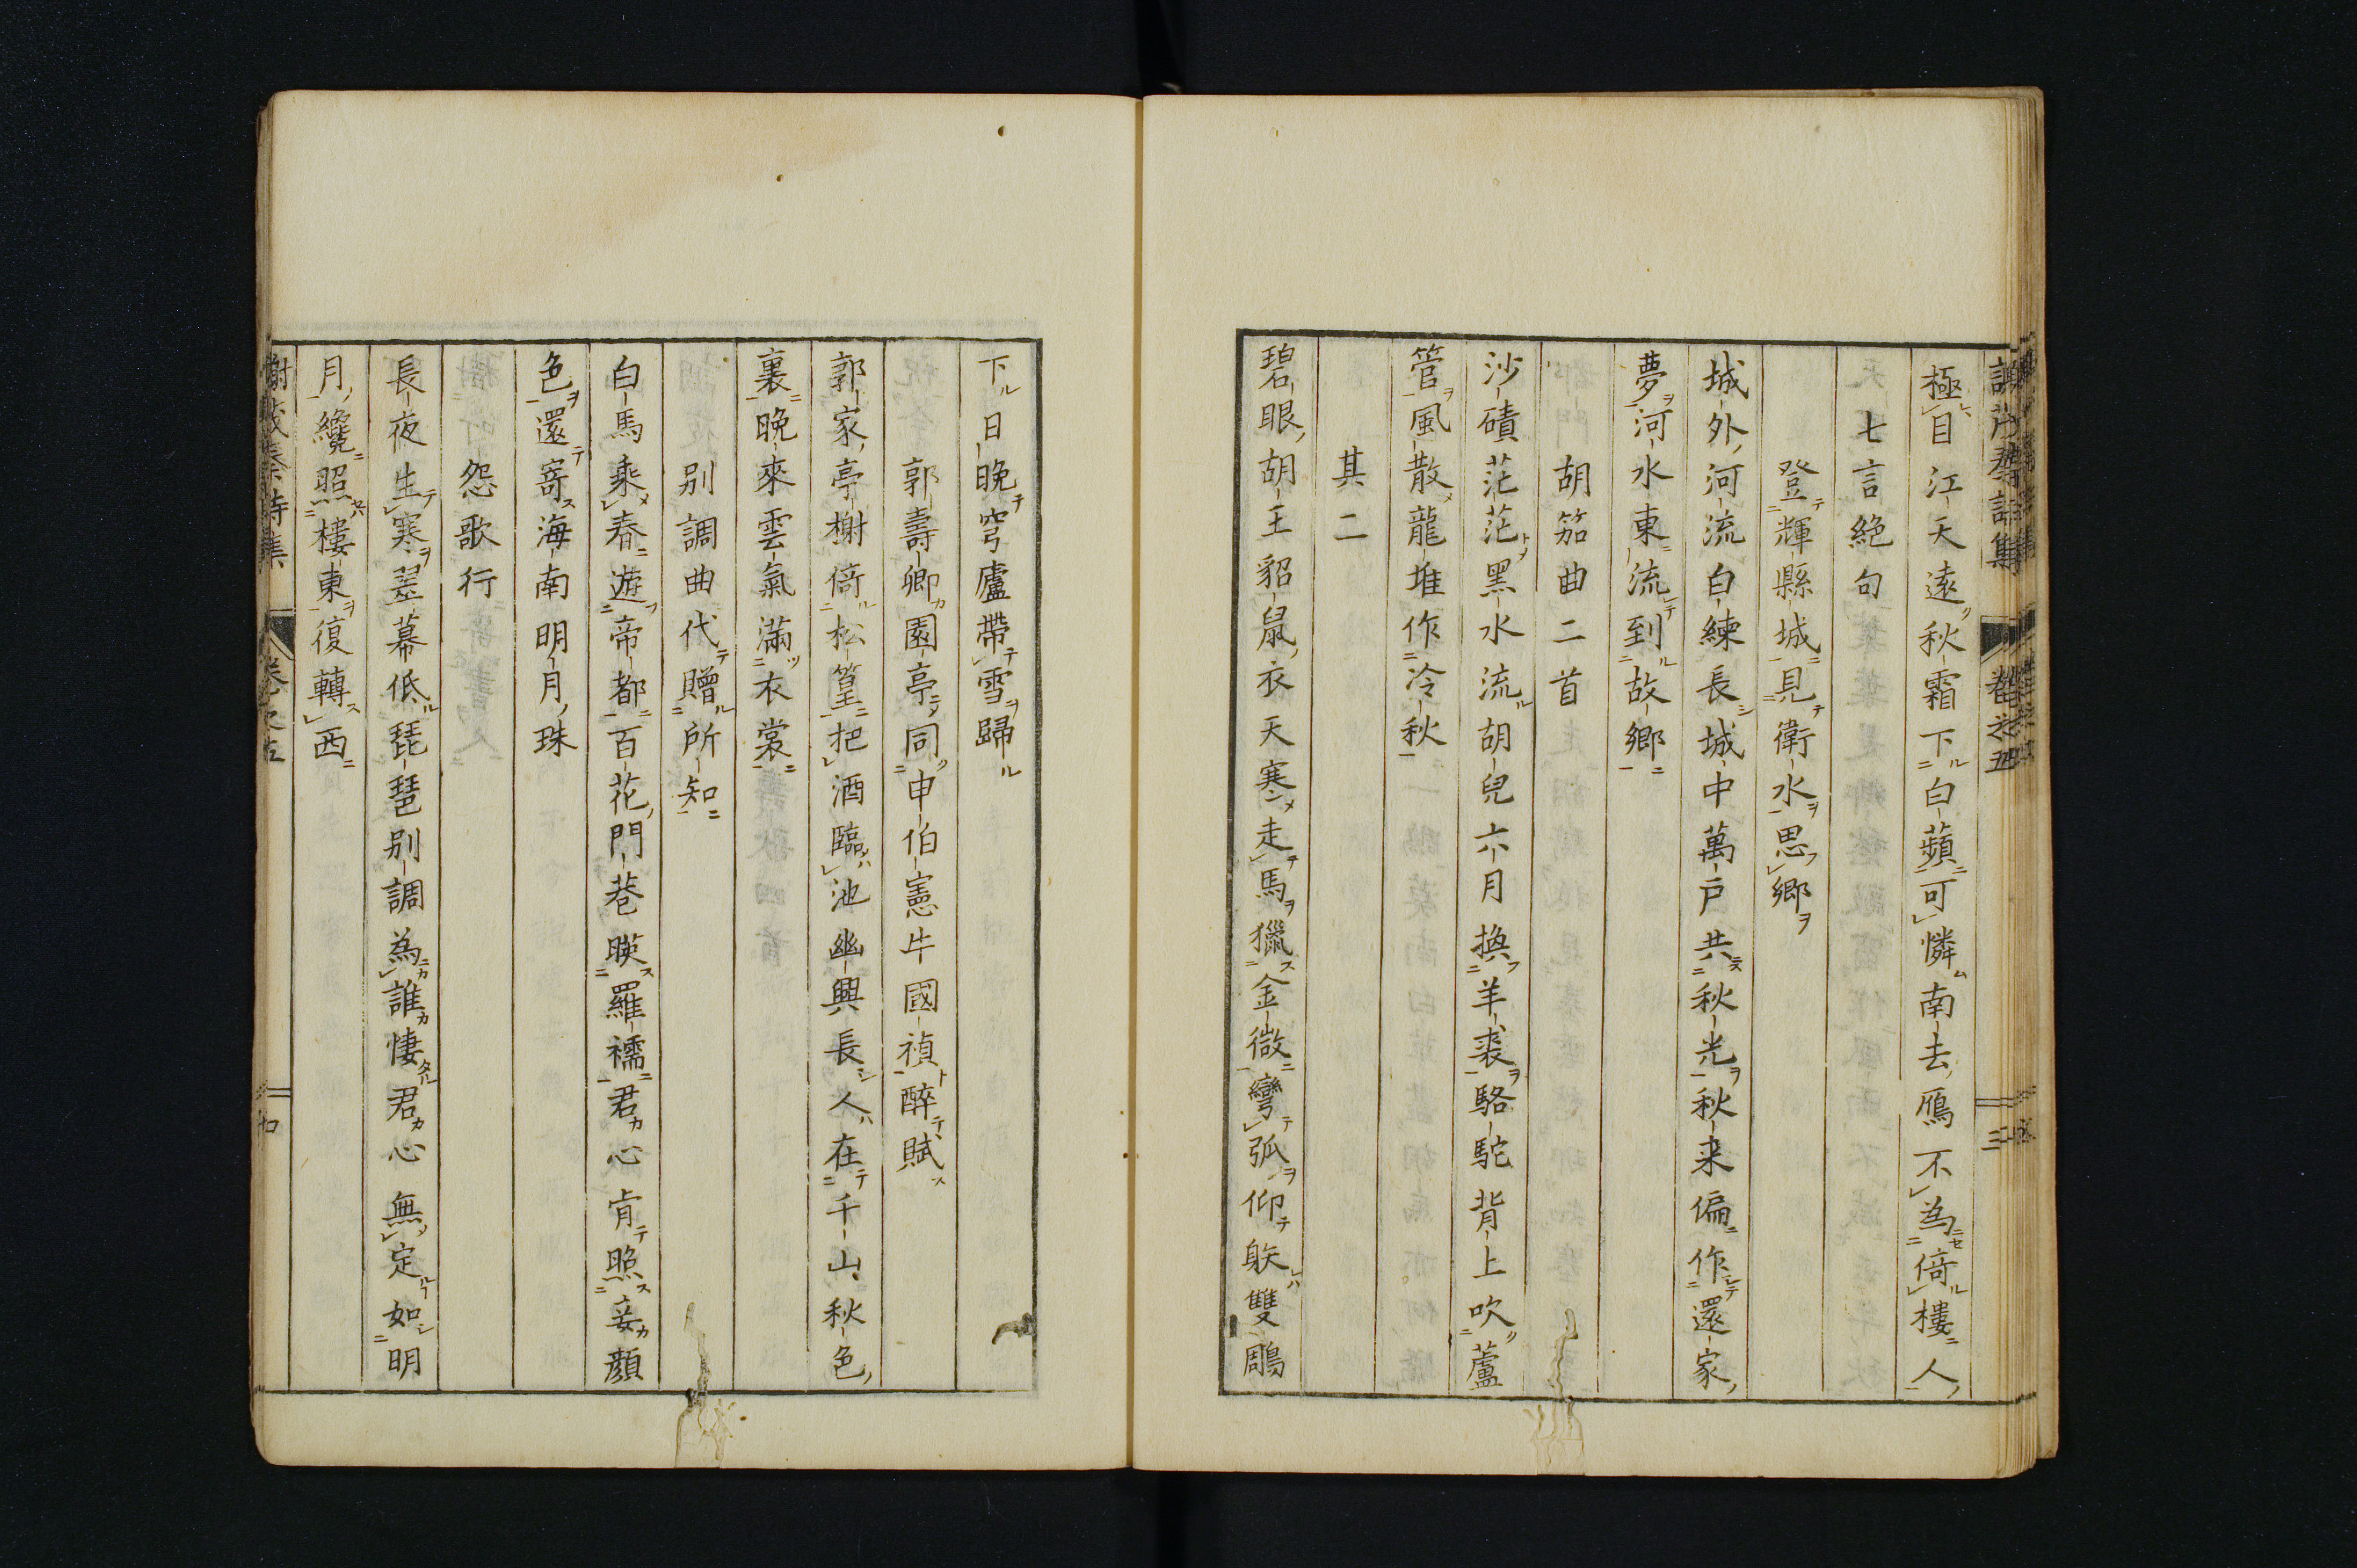 極目江天遠秋霜下白蘋可憐南去鴈不為倚樓人
七言絶句
登輝縣城見衛水思郷
城外河流白練長城中萬戸共秋光秋来偏作還家
夢河水東流到故郷
胡笳曲二首
沙磧茫茫黑水流胡兒六月換羊裘駱駝背上吹蘆
管風散龍堆作冷秋
其二
碧眼胡王貂鼠衣天寒走馬獵金微彎弧仰䠶雙鵰
下日晚穹廬帶雪歸
郭壽卿園亭同申伯憲牛國禎醉賦
郭家亭榭倚松篁把酒臨池幽興長人在千山秋色
裏晚來雲氣滿衣裳
别調曲代贈所知
白馬乘春遊帝都百花門巷暎羅襦君心肯照妾顔
色還寄海南明月珠
怨歌行
長夜生寒翠幕低琵琶别調為誰悽君心無定如明
月纔照樓東復轉西